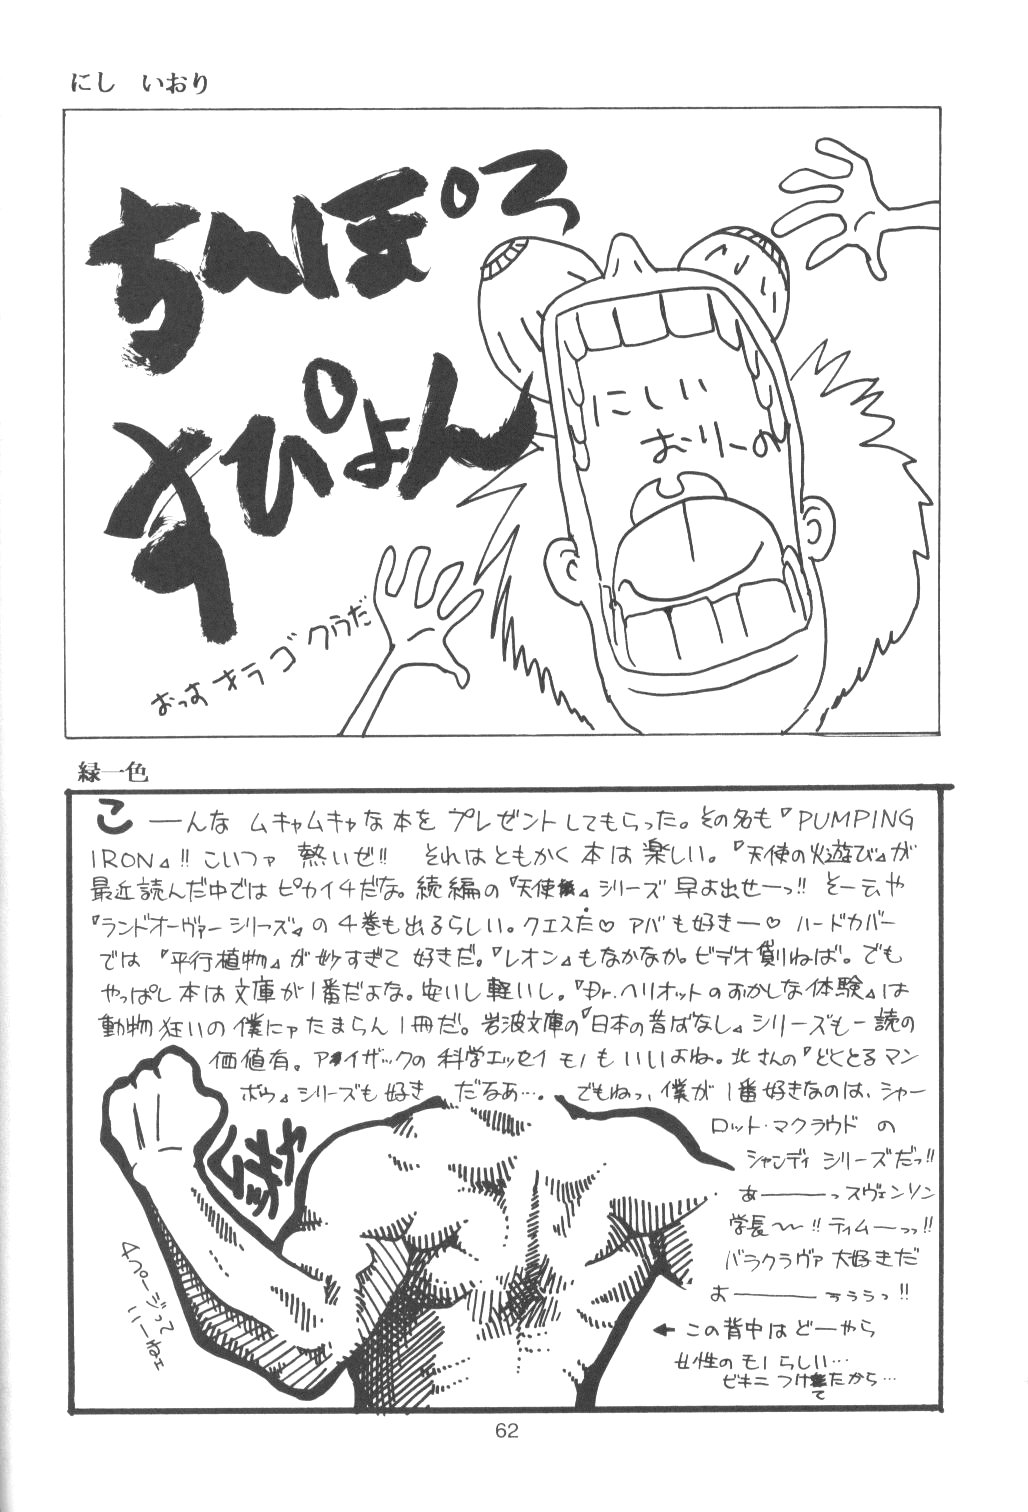 にし　いおり
ちんぽろ
すぴょん
にしい
おりーの
おっす オラ ゴクウだ
緑一色
こーーんな ムキャムキャな本を プレゼントしてもらった。その名も『PUMPING
IRON』!! こいつァ 熱いぜ!! それはともかく 本は楽しい。『天使の火遊び』が
最近読んだ中では ピカイチだな。続編の『天使』シリーズ 早よ出せーっ!! そーいや
『ランドオーヴァーシリーズ』の4巻も出るらしい。クエスた♡ アバも好きー♡ ハードカバー
では 『平行植物』が妙すぎて 好きだ。『レオン』もなかなか。ビデオ借りねば。でも
やっぱし本は文庫が1番だよな。安いし軽いし。『Dr.ヘリオットのおかしな体験』は
動物狂いの僕にァたまらん1冊だ。岩波文庫の『日本の昔ばなし』シリーズも一読の
価値有。アイザックの 科学エッセイ モノもいいよね。北さんの『どくとるマン
ボウ』シリーズも好き だなぁ…。 でもねっ、僕が 1番好きなのは、シャー
ロット・マクラウド の
シャンディ シリーズだっ!!
あーーーっスヴェンソン
学長〜〜!! ティムーーっっ!!
バラクラヴァ 大好きだ
おーーーぅぅぅっ!!
← この背中は どーやら
女性のモノらしい…
ビキニ つけてたから…
4ページって
いーねェ
62